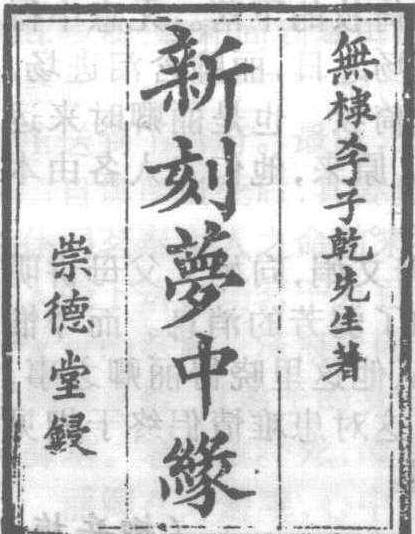 無棣李子乾先生著
新刻夢中緣
崇德堂鋟